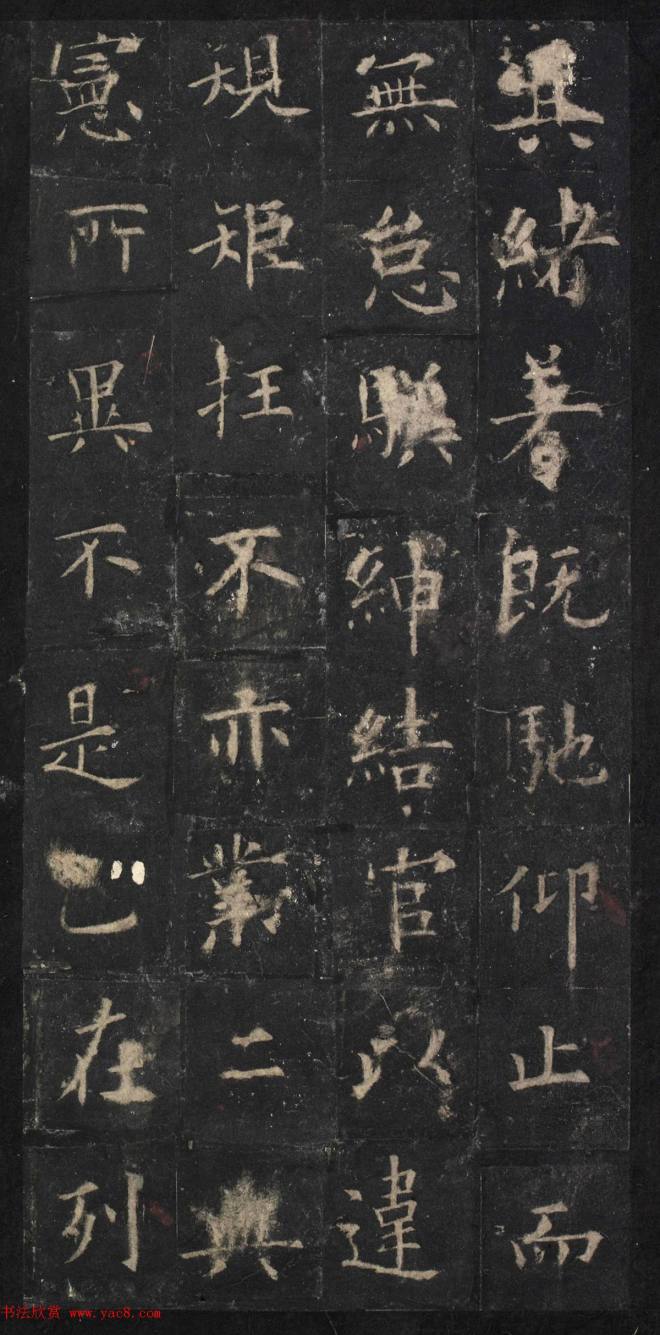 其緒著既馳仰止而
無怠驥紳結官以違
規矩抂不亦二典
憲所異不是在列
书法欣赏 www.yac8.com